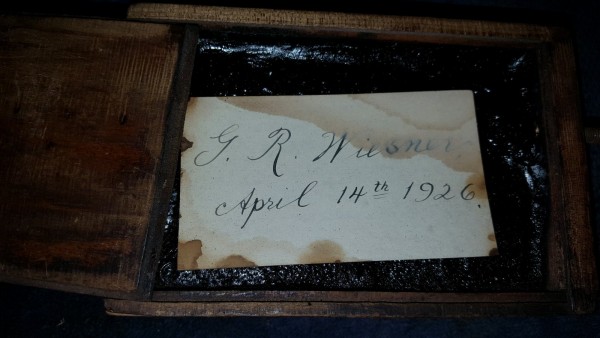 G. R. Wiesner.
April 14th 1926.